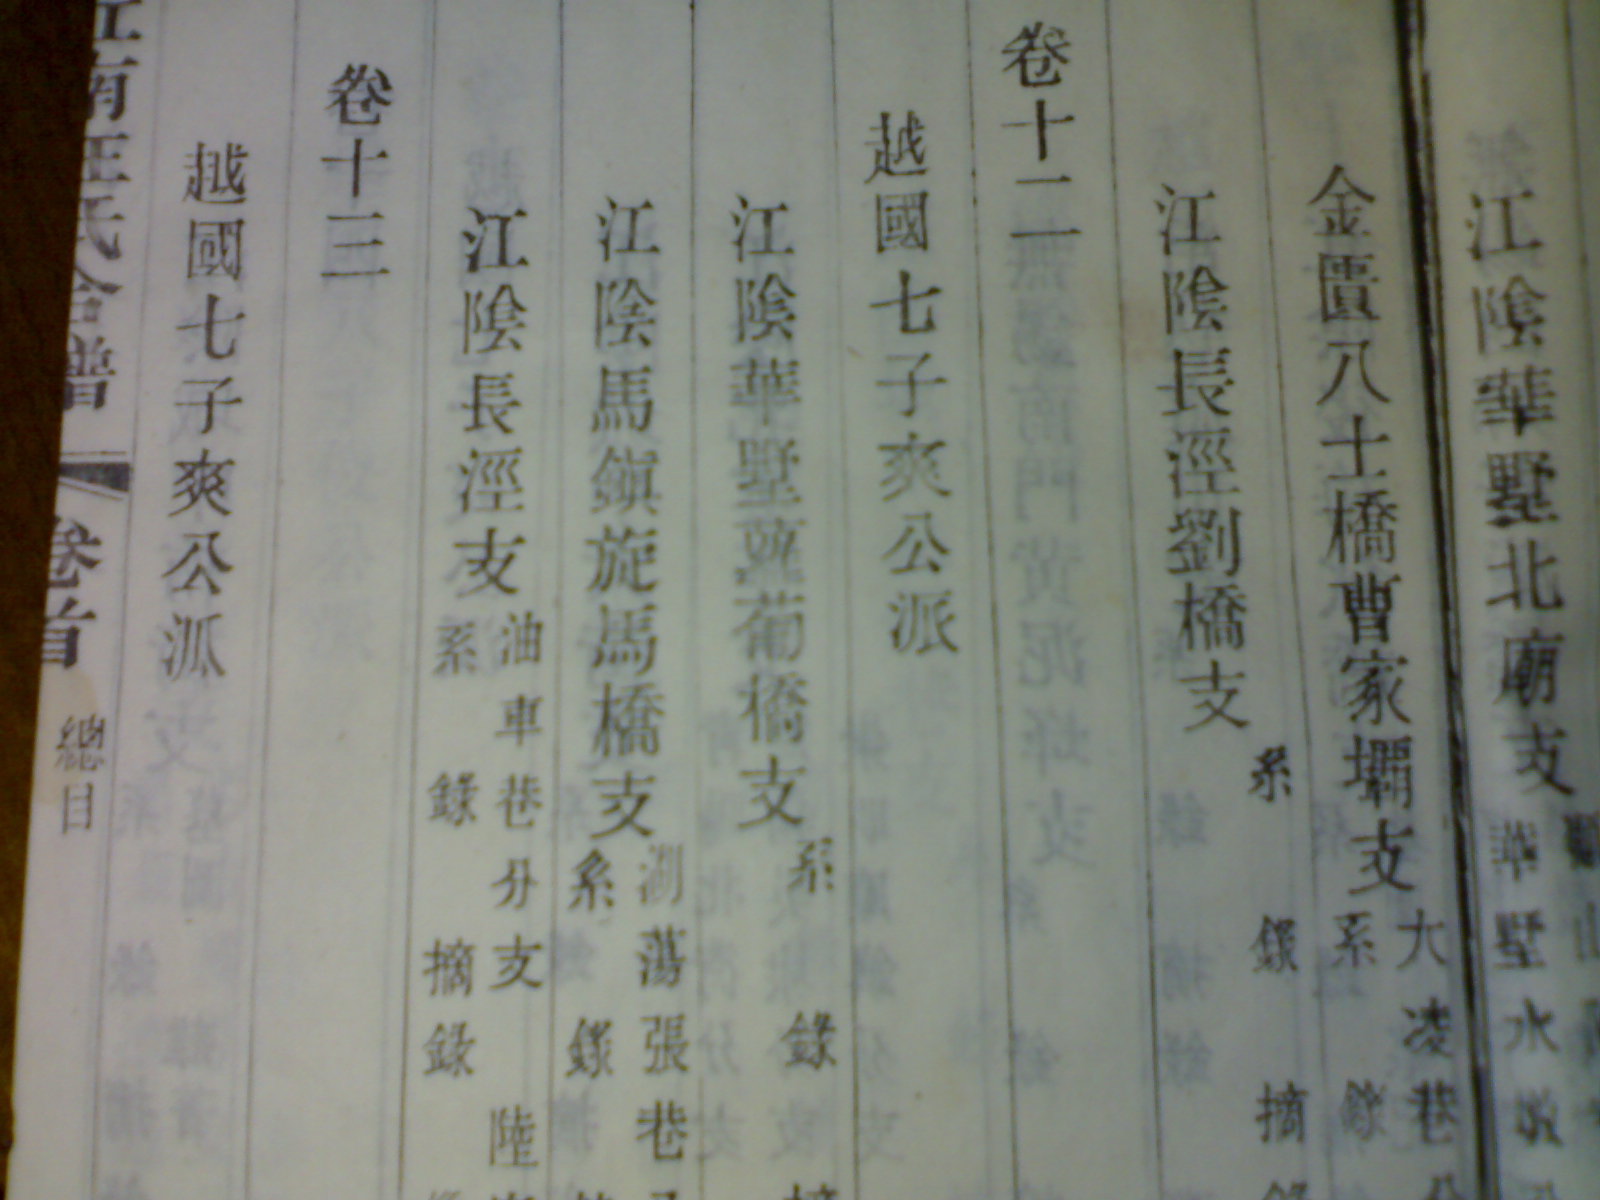 江陰華墅北廟支
華墅水
金匱八士橋曹家壩支
大凌巷
系錄
江陰長涇劉橋支
系錄摘
卷十二
越國七子爽公派
江陰華墅薰葡橋支
系錄
江陰馬鎮旋馬橋支
蕩張巷
系錄
江陰長涇支
油車巷分支陸
系錄摘錄
卷十三
越國七子爽公派
江南汪氏合譜 卷首 總目